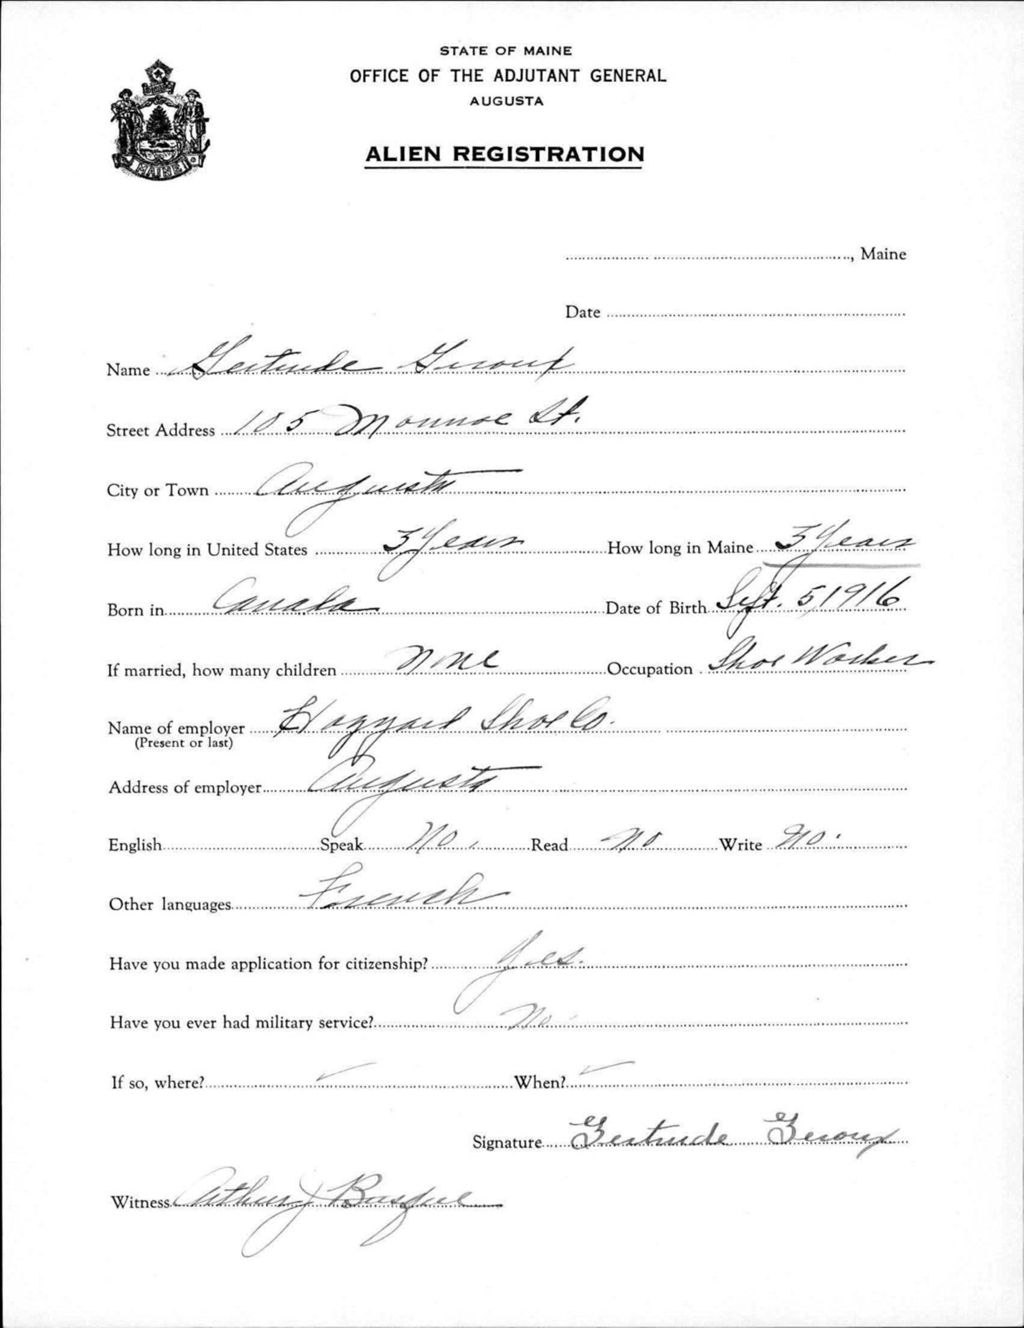 STATE OF MAINE
OFFICE OF THE ADJUTANT GENERAL
AUGUSTA
ALIEN REGISTRATION
MAINE
, Maine
Date
Name Gertrude Geroux
Street Address 105 Monroe St.
City or Town Augusta
How long in United States 3 Years How long in Maine 3 Years
Born in Canada Date of Birth Sept. 5, 1916
If married, how many children None Occupation Shoe Worker
Name of employer Hazzard Shoe Co.
(Present or last)
Address of employer Augusta
English Speak No. Read No Write No.
Other languages French
Have you made application for citizenship? Yes.
Have you ever had military service? No.
If so, where? When?
Signature Gertrude Geroux
Witness Arthur J Basque